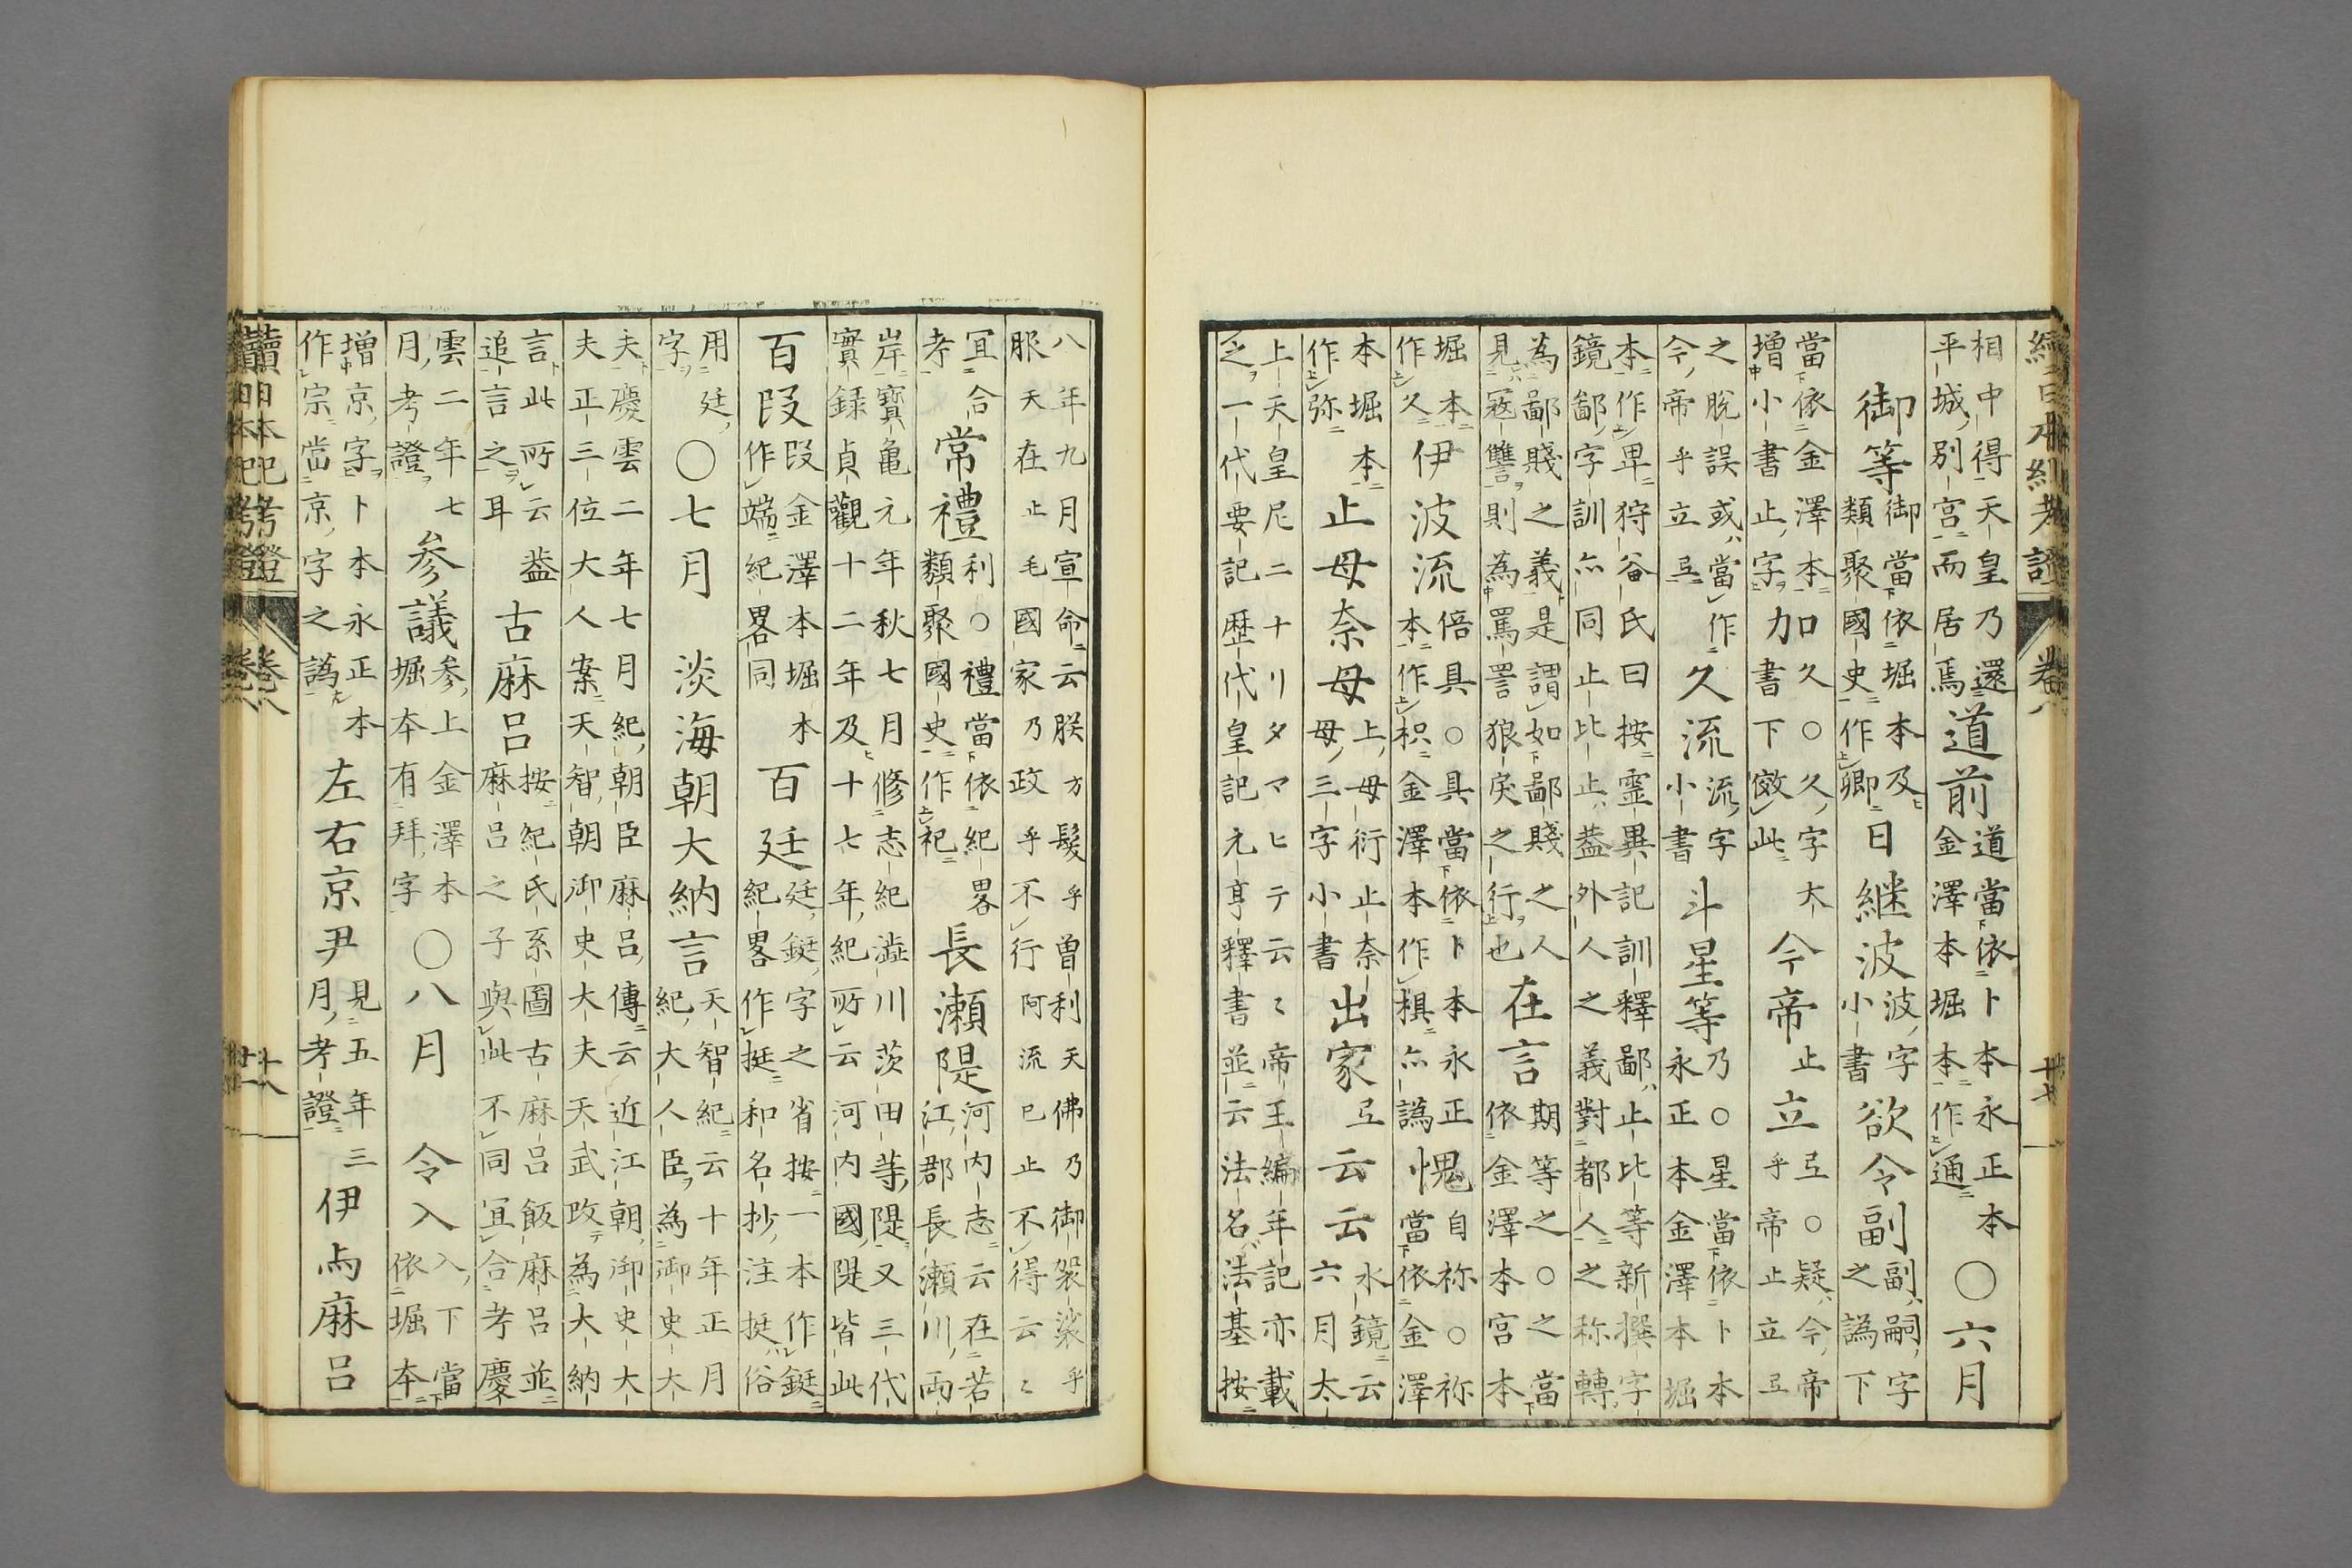 相中得天皇乃還
平城別宮而居焉
道前
道當依卜本永正本
金澤本堀本作通
〇六月
御等
御當依堀本及
類聚國史作卿
日継波
波字
小書
欲令副
副嗣字
之譌下
當依金澤本加久〇久字大
増小書止字力書下倣此
今帝
止
立
𢎞〇疑今帝
乎帝止立𢎞
之脫誤或當作
今帝乎立𢎞
久流
流字
小書
斗星等
乃〇星當依卜本
永正本金澤本堀
本作畀狩谷氏曰按靈異記訓釋鄙止比等新撰字
鏡鄙字訓亦同止比止蓋外人之義對都人之称轉
為鄙賤之義是謂如鄙賤之人
見寇讐則為罵詈狼戾之行也
在言
期等之〇之當
依金澤本宮本
堀本
作久
伊波流
倍具〇具當依卜本永正
本作枳金澤本作棋亦譌
愧
自祢〇祢
當依金澤
本堀本
作弥
止母奈母
上母衍止奈
母三字小書
出家
𢎞
云云
水鏡云
六月太
上天皇尼ニナリタマヒテ云〻帝王編年記亦載
之一代要記歴代皇記元亨釋書並云法名法基按
續日本紀考證
卷八
八年九月宣命云朕方髮乎曽利天佛乃御袈裟乎
服天在止毛國家乃政乎不行阿流已止不得云〻
宜合
考
常禮
利〇禮當依紀畧
類聚國史作祀
長瀬隄
河内志云在若
江郡長瀬川両
岸寶亀元年秋七月修志紀澁川茨田䓁隄又三代
實録貞觀十二年及十七年紀所云河内國隄皆此
百段
段金澤本堀本
作端紀畧同
百廷
廷鋌字之省按一本作鋌
紀畧作挺和名抄注挺俗
用廷
字
〇七月
淡海朝大納言
天智紀云十年正月
紀大人臣為御史大
夫慶雲二年七月紀朝臣麻呂傳云近江朝御史大
夫正三位大人案天智朝御史大夫天武改為大納
言此所云蓋
追言之耳
古麻呂
按紀氏系圖古麻呂飯麻呂並
麻呂之子與此不同宜合考慶
雲二年七
月考證
参議
参上金澤本
堀本有拜字
〇八月
令入
入下當
依堀本
増京字卜本永正本
作宗當京字之譌
左右京尹
見五年三
月考證
伊与麻呂
續日本紀考證
卷八
十八